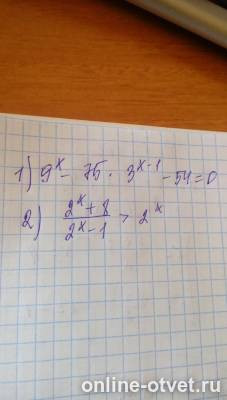 1) 9^x - 75 · 3^(x-1) - 54 = 0
2) (2^x + 8)/(2^x - 1) > 2^x
online-otvet.ru